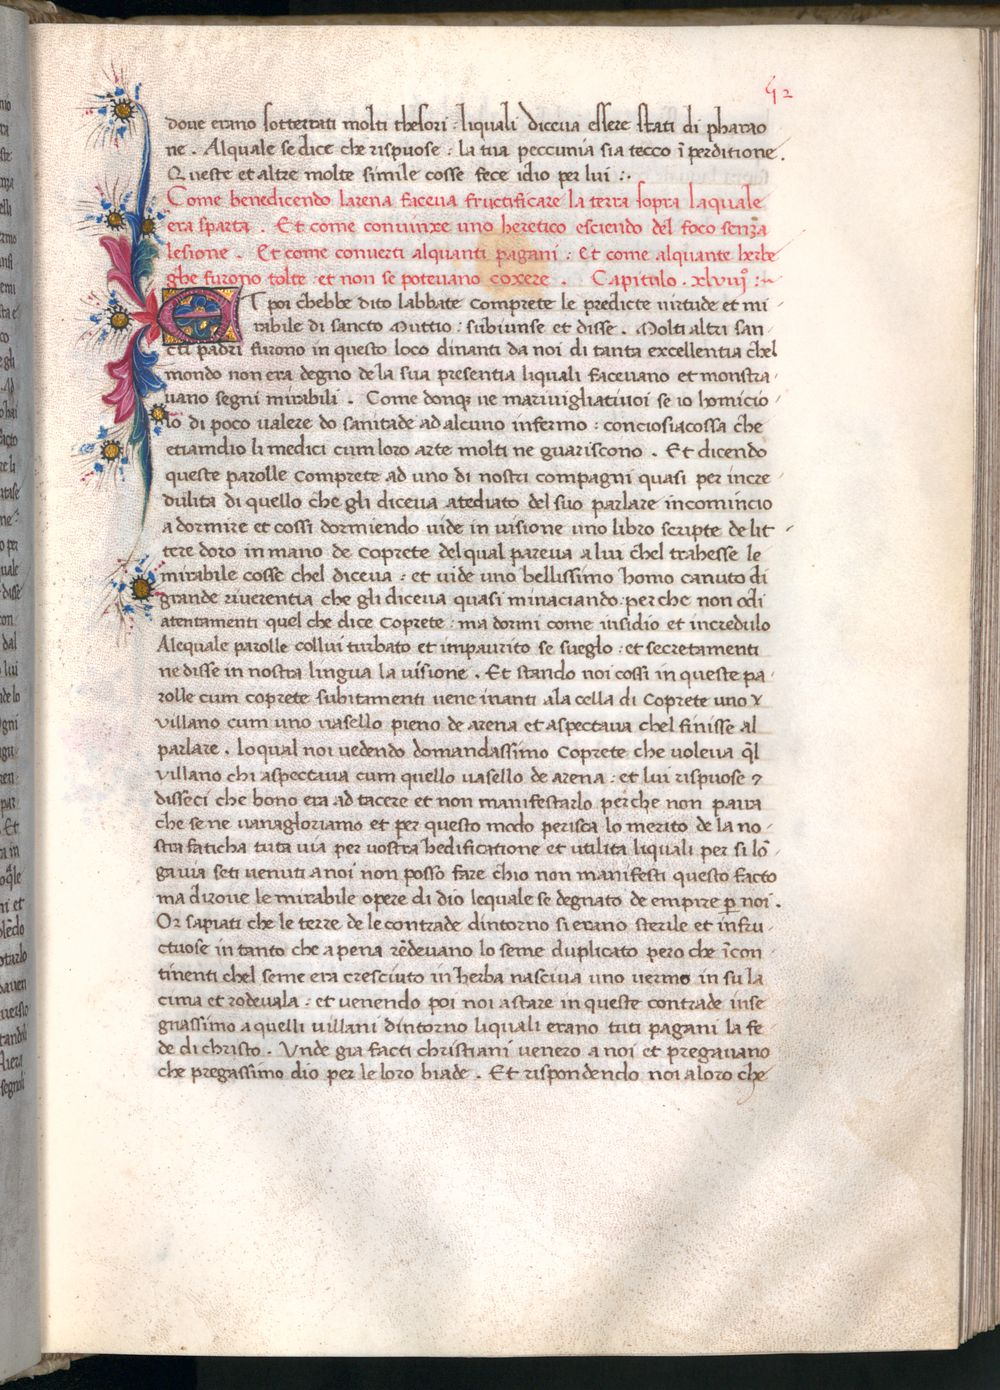 52
doue erano sotterrati molti thesori : liquali diceua essere stati di pharao
ne . Alquale se dice che rispuose : la tua peccunia sia tecco ĩ perditione .
Queste et altre molte simile cosse fece idio per lui :.
Come benedicendo larena faceua fructificare la terra sopra laquale
era sparta . Et come conuinxe uno heretico esciendo del foco senza
lesione . Et come conuerti alquanti pagani : Et come alquante herbe
ghe furono tolte et non se poteuano coxere . Capitulo . xlviiij° :~
ET poi chebbe dito labbate comprete le predicte uirtude et mi
rabile di sancto Muttio : subiunse et disse . Molti altri san -
cti padri furono in questo loco dinanti da noi di tanta excellentia chel
mondo non era degno de la sua presentia liquali faceuano et monstra -
uano segni mirabili . Come donqʒ ue mariuigliatiuoi se io homicio -
lo di poco ualere do sanitade ad alcuno infermo : conciosiacossa che
etiamdio li medici cum loro arte molti ne guariscono . Et dicendo
queste parolle comprete ad uno di nostri compagni quasi per incre
dulita di quello che gli diceua atediato del suo parlare incomincio
a dormire et cossi dormiendo uide in uisione uno libro scripte de lit -
tere doro in mano de coprete del qual pareua a lui chel trahesse le
mirabile cosse chel diceua : et uide uno bellissimo homo canuto di
grande riuerentia che gli diceua quasi minaciando : perche non odi
atentamenti quel che dice Coprete : ma dormi come insidio et incredulo
Alequale parolle collui turbato et impaurito se sueglo : et secretamenti
ne disse in nostra lingua la uisione . Et stando noi cossi in queste pa -
rolle cum coprete subitamenti uene inanti ala cella di Coprete uno
villano cum uno uasello pieno de arena et aspectaua chel finisse al
parlare . loqual noi uedendo domandassimo Coprete che uoleua q̃l
villano chi aspectaua cum quello uasello de arena : et lui rispuose
disseci che bono era ad tacere et non manifestarlo perche non paira
che se ne uanagloriamo et per questo modo perisca lo merito de la no -
stra faticha tuta uia per uostra hedificatione et utilita liquali per si lõ
ga uia seti uenuti a noi non posso fare chio non manifesti questo facto
ma diroue le mirabile opere di dio lequale se degnato de empire p̱ noi .
Or sapiati che le terre de le contrade dintorno si erano sterile et infru -
ctuose in tanto che a pena rẽdeuano lo seme duplicato pero che ĩcon -
tinenti chel seme era cresciuto in herba nasciua uno uermo in su la
cima et rodeuala : et uenendo poi noi a stare in queste contrade inse
gnassimo a quelli uillani dintorno liquali erano tuti pagani la fe -
de di christo . Unde gia facti christiani uenero a noi et pregauano
che pregassimo dio per le loro biade . Et rispondendo noi a loro che